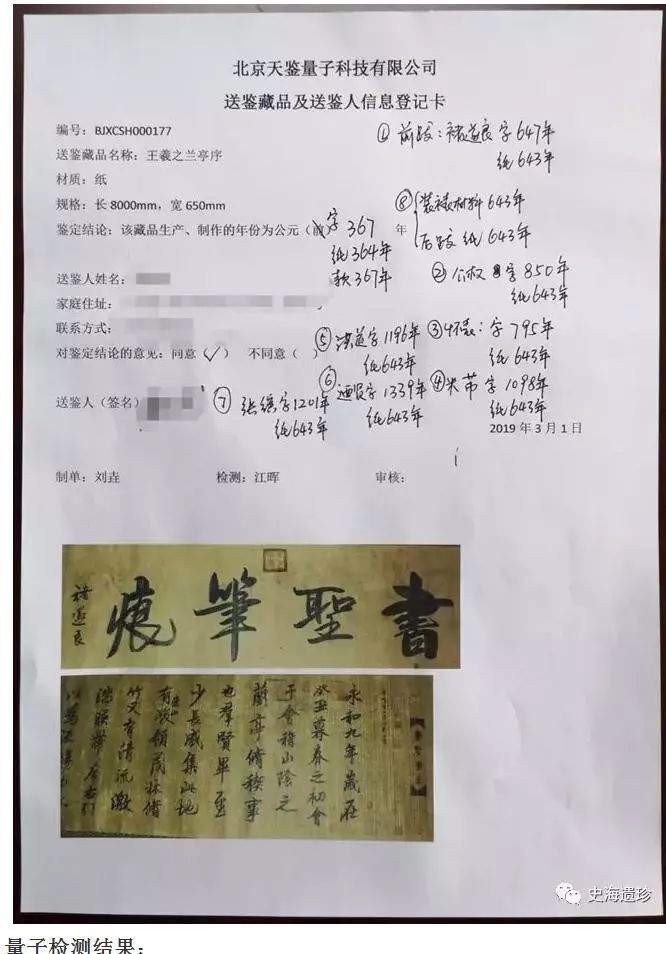 北京天鉴量子科技有限公司
送鉴藏品及送鉴人信息登记卡
编号：BJXCSH000177
① 前跋：褚遂良 字 647年
纸 643年
送鉴藏品名称：王羲之兰亭序
材质：纸
规格：长 8000mm，宽 650mm
⑧ 装裱材料 643年
后跋 纸 643年
鉴定结论：该藏品生产、制作的年份为公元（前） 年
字 367
纸 364年
款 367年
② 公权 字 850年
纸 643年
送鉴人姓名：
家庭住址：
联系方式：
⑤ 字 1196年
纸 643年
③ 怀素：字 795年
纸 643年
对鉴定结论的意见：同意（✓） 不同意（ ）
⑥ 字 1339年
纸 643年
④ 米芾 字 1098年
纸 643年
送鉴人（签名）
⑦ 字 1201年
纸 643年
2019 年 3 月 1 日
制单：刘垚 检测：江晖 审核：
書聖筆痕
褚遂良
永和九年歲在
癸丑暮春之初會
于會稽山陰之
蘭亭脩稧事
也羣賢畢至
少長咸集此地
有峻領茂林脩
竹又有清流激
湍暎帶左右引
史海遗珍
量子检测结果：